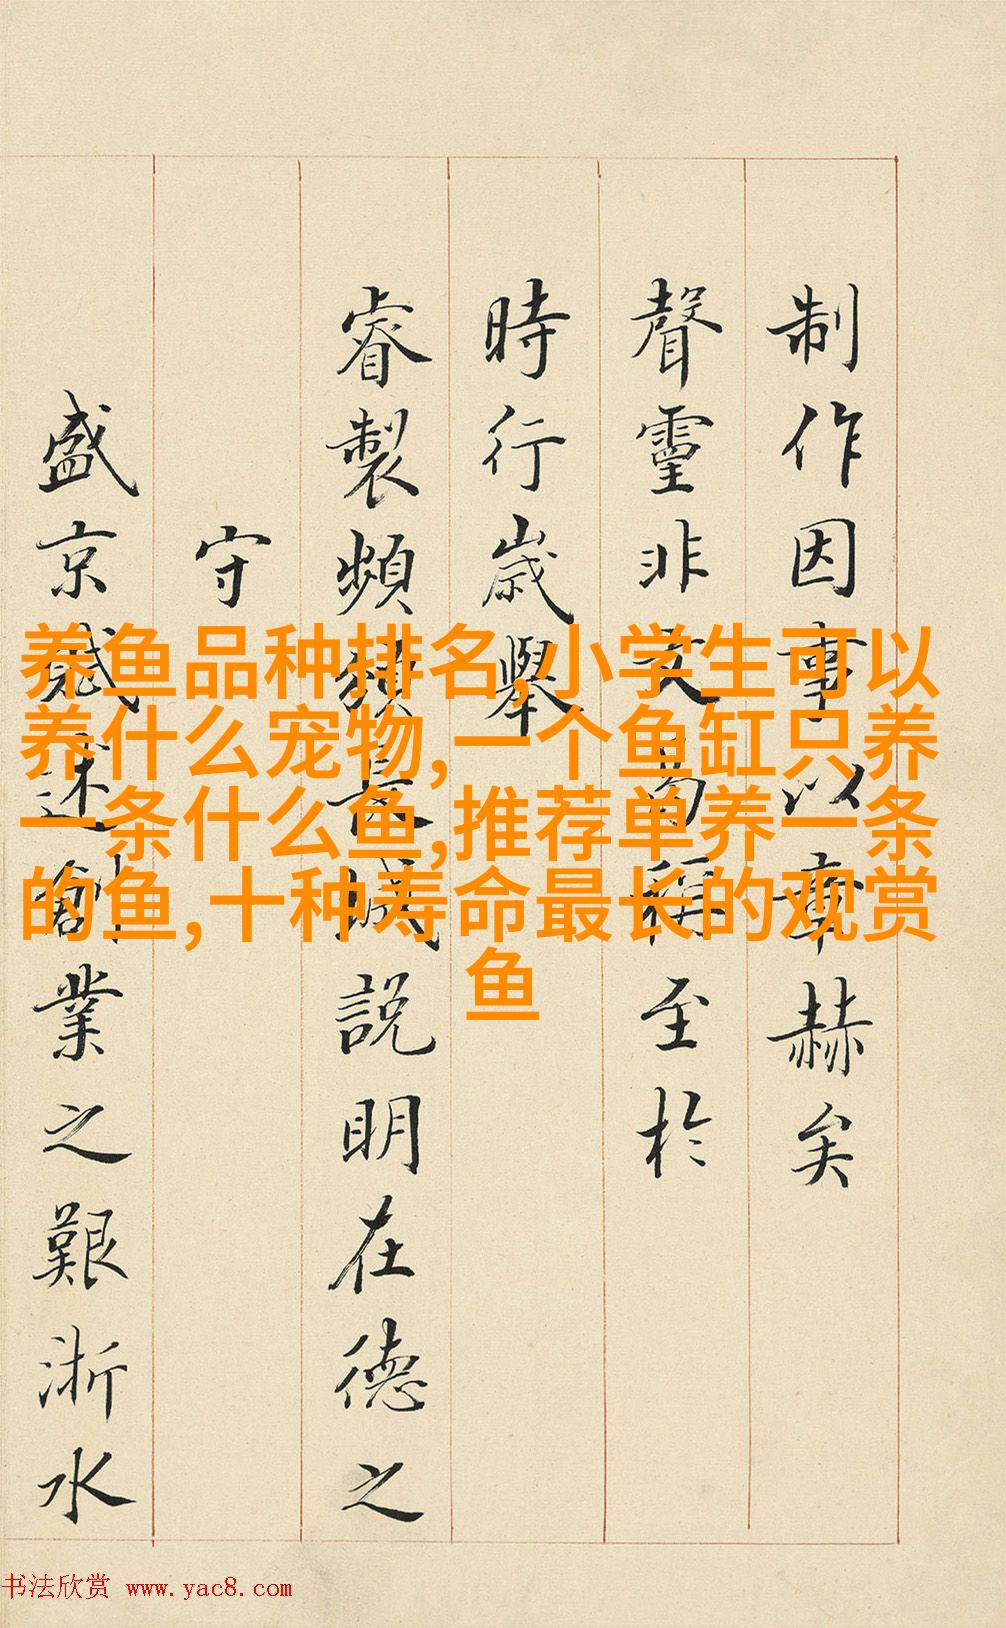 制作因事以章赫矣
聲靈非文曷稱至於
時行歲舉
睿製頻頒長城說明在德之
守
盛京賦述創業之艱浙水
养鱼品种排名,小学生可以
养什么宠物,一个鱼缸只养
一条什么鱼,推荐单养一条
的鱼,十种寿命最长的观赏
鱼
书法欣赏 www.yac8.com